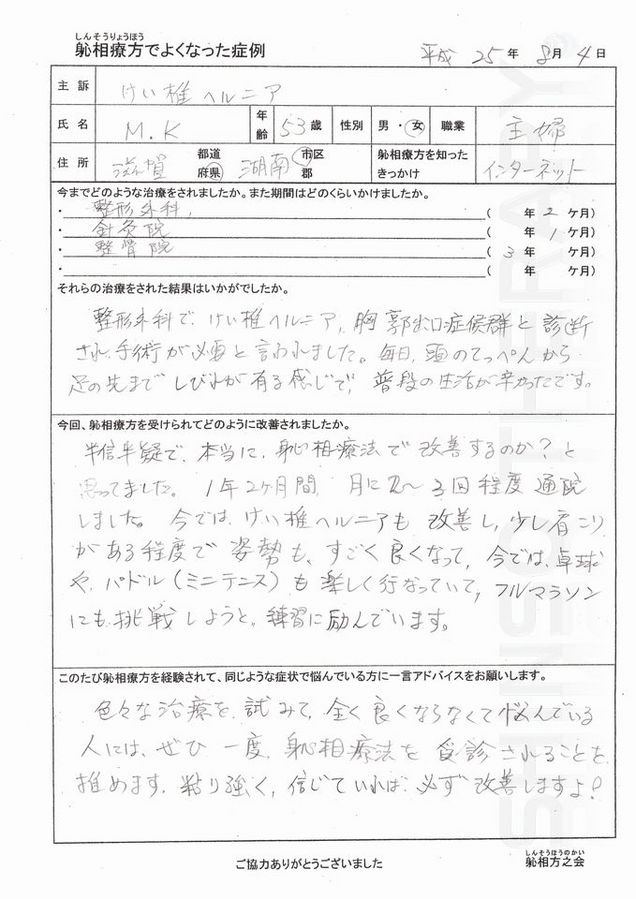 しんそうりょうほう
躰相療方でよくなった症例
平成 25 年 8 月 4 日
主訴 けい椎ヘルニア
氏名 M.K 年齢 53歳 性別 男・女 職業 主婦
住所 滋賀 都道府県 湖南 市区郡 躰相療方を知ったきっかけ インターネット
今までどのような治療をされましたか。また期間はどのくらいかけましたか。
・整形外科, ( 年 2 ケ月)
・針灸院 ( 年 1 ケ月)
・整骨院 ( 3 年 ケ月)
・ ( 年 ケ月)
それらの治療をされた結果はいかがでしたか。
整形外科で、けい椎ヘルニア, 胸郭出口症候群と診断
され、手術が必要と言われました。毎日、頭のてっぺんから
足の先までしびれが有る感じで、普段の生活が辛かったです。
今回、躰相療方を受けられてどのように改善されましたか。
半信半疑で、本当に、躰相療法で改善するのか?と
思ってました。1年2ケ月間、月に2〜3回程度通院
しました。今では、けい椎ヘルニアも改善し,少し肩こり
がある程度で姿勢も、すごく良くなって,今では、卓球
や、パドル(ミニテニス)も楽しく行なっていて,フルマラソン
にも挑戦しようと、練習に励んでいます。
このたび躰相療方を経験されて、同じような症状で悩んでいる方に一言アドバイスをお願いします。
色々な治療を、試みて,全く良くならなくて悩んでいる
人には、ぜひ一度、躰相療法を受診されることを
推めます。粘り強く,信じていれば、必ず改善しますよ!
ご協力ありがとうございました
しんそうほうのかい
躰相方之会
SHINSO THERAPY®